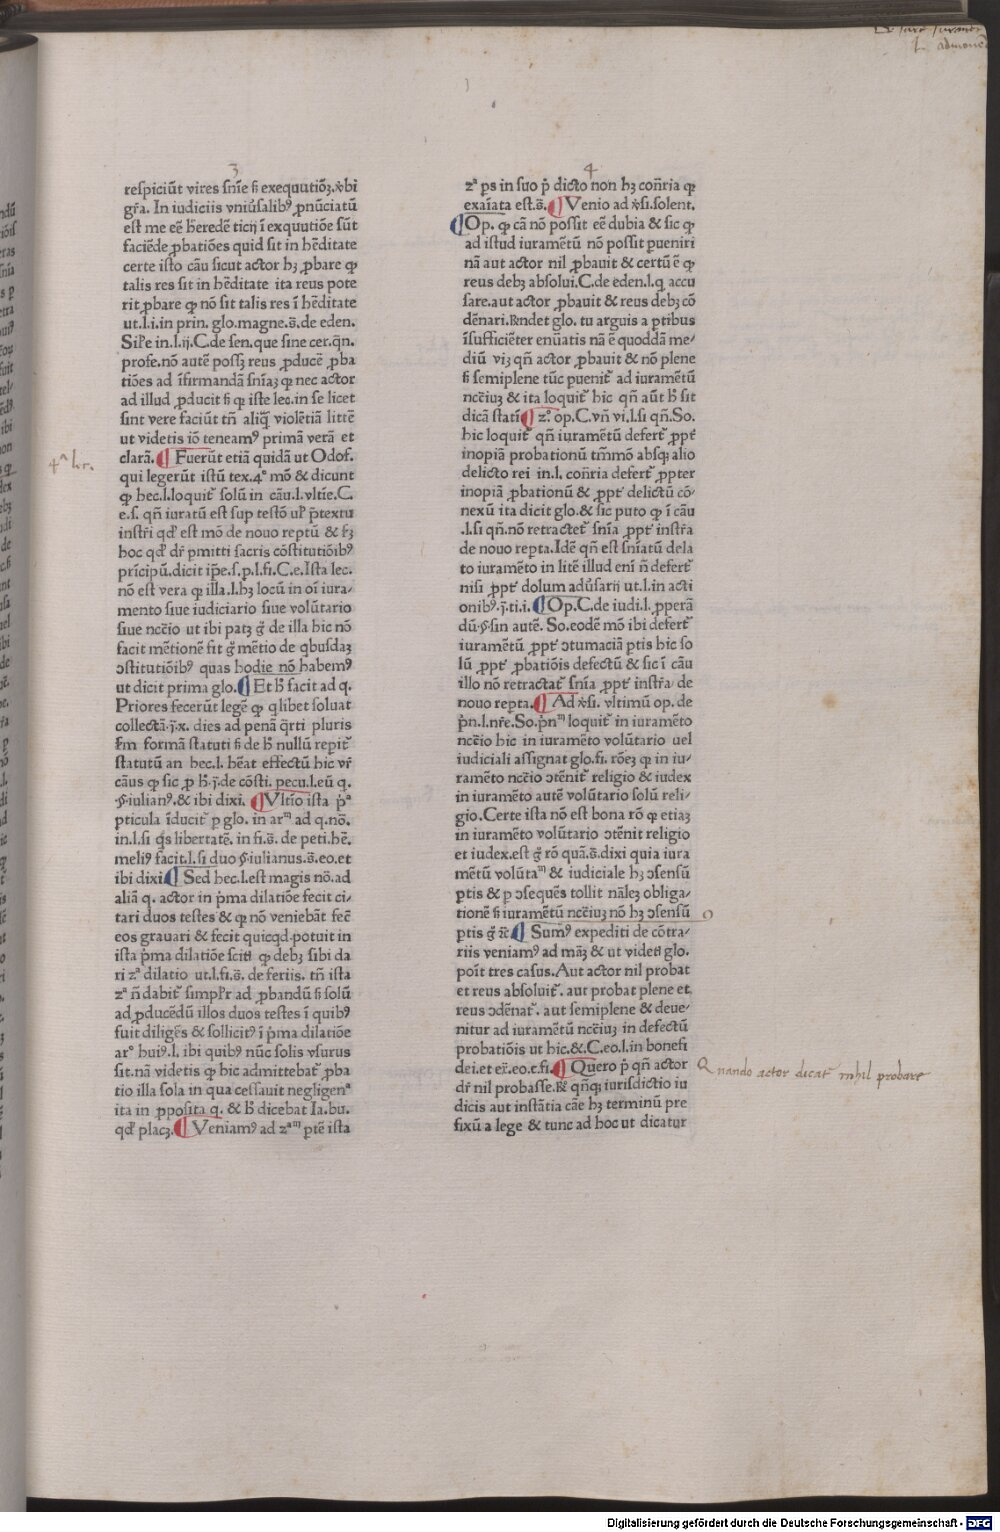 De iure iuran
L. admonē
3
respiciūt vires sn̄ie si exequutiōꝫ. vbi
gr̄a. In iudiciis vniūsalibꝰ ꝓnūciatū
est me eē heredē ticij ī exquutiōe sūt
faciēde ꝓbatiōes quid sit in hēditate
certe isto cāu sicut actor hꝫ ꝓbare ꝙ
talis res sit in hēditate ita reus pote
rit ꝓbare ꝙ nō sit talis res ī hēditate
ut.l.i.in prin. glo.magne.s̄.de eden.
Sil̄e in.l.ij.C.de sen.que sine cer.q̄n.
profe.nō autē possꝫ reus ꝓducē ꝓba
tiōes ad īfirmandā sn̄iaꝫ ꝙ nec actor
ad illud ꝓducit si ꝙ iste lec.in se licet
sint vere faciūt tn̄ aliq̄ violētiā littē
ut videtis iō teneamꝰ primā verā et
clarā. ¶ Fuerūt etiā quidā ut Odof.
4ª lec.
qui legerūt istū tex.4° mō & dicunt
ꝙ hec.l.loquit̄ solū in cāu.l.vltīe.C.
e.s. qn̄ iuratū est sup testō ul̄ p̄textu
instr̄i qd̄ est mō de nouo reptū & sꝫ
hoc qd̄ dr̄ pmitti sacris cōstitutiōibꝰ
prīcipū.dicit ip̄e.s.p.l.fi.C.e.Ista lec.
nō est vera ꝙ illa.l.hꝫ locū in oī iura⸗
mento siue iudiciario siue volūtario
siue nccīo ut ibi patꝫ ḡ de illa hic nō
facit mētionē sit ḡ mētio de qbusdaꝫ
ↄstitutiōibꝰ quas hodie nō habemꝰ
ut dicit prima glo. ¶ Et h̄ facit ad q.
Priores fecerūt legē ꝙ qlibet soluat
collectā.j.x. dies ad penā q̄rti pluris
sm̄ formā statuti si de h̄ nullū repit̄
statutū an hec.l. hēat effectū hic vr̄
cāus ꝙ sic ꝓ h̄.j.de cōsti. pecu.l.eū q.
§.iulianꝰ.& ibi dixi. ¶ Vltīo ista p̄ª
pticula īducit̄ p glo. in arᵐ ad q.nō.
in.l.si q̄s libertatē. in fi.s̄. de peti.hē.
meliꝰ facit.l.si duo §.iulianus.s̄.eo.et
ibi dixi ¶ Sed hec.l.est magis nō.ad
aliā q. actor in p̄ma dilatiōe fecit ci⸗
tari duos testes & ꝙ nō veniebāt fec̄
eos grauari & fecit quicqd.potuit in
ista p̄ma dilatiōe scit̄ ꝙ debꝫ sibi da
ri zª dilatio ut.l.fi.s̄. de feriis. tn̄ ista
zª n̄ dabit̄ simpl̄r ad ꝓbandū si solū
ad ꝓducēdū illos duos testes ī quibꝰ
fuit diligēs & sollicitꝰ ī p̄ma dilatiōe
arº huiꝰ.l. ibi quibꝰ nūc solis vsurus
sit.nā videtis ꝙ hic admittebat̄ ꝓba
tio illa sola in qua cessauit negligenª
ita in ꝓposita q. & h̄ dicebat Ia.bu.
qd̄ placꝫ. ¶ Veniamꝰ ad zªᵐ ptē ista
4
zª ps in suo p̄ dicto non hꝫ con̄ria ꝙ
exaīata est.s̄. ¶ Venio ad v̄si.solent.
¶ Op. ꝙ cā nō possit eē dubia & sic ꝙ
ad istud iuramētū nō possit pueniri
nā aut actor nil ꝓbauit & certū ē ꝙ
reus debꝫ absolui.C.de eden.l.q accu
sare.aut actor ꝓbauit & reus debꝫ cō
dēnari.Rn̄det glo. tu arguis a ptibus
īsufficiēter enūatis nā ē quoddā me⸗
diū viꝫ qn̄ actor ꝓbauit & nō plene
si semiplene tūc puenit̄ ad iuramētū
nccīuꝫ & ita loquit̄ hic qn̄ aūt h̄ sit
dicā statī ¶ zº op.C.vn̄ vi.l.si qn̄.So.
hic loquit̄ qn̄ iuramētū defert̄ ꝓpt̄
inopiā probationū tm̄mō absqꝫ alio
delicto rei in.l. con̄ria defert̄ ꝓpter
inopiā ꝓbationū & ꝓpt̄ delictū cō⸗
nexū ita dicit glo.& sic puto ꝙ ī cāu
.l.si qn̄.nō retractet̄ sn̄ia ꝓpt̄ instr̄a
de nouo repta.Idē qn̄ est sn̄iatū dela
to iuramēto in litē illud enī n̄ defert̄
nisi ꝓpt̄ dolum adūsarii ut.l.in acti
onibꝰ.j.ti.i. ¶ Op.C.de iudi.l. ꝓperā
dū.§.sin autē. So.eodē mō ibi defert̄
iuramētū ꝓpt̄ ↄtumaciā ptis hic so
lū ꝓpt̄ ꝓbatiōis defectū & sic ī cāu
illo nō retractat̄ sn̄ia ꝓpt̄ instr̄a de
nouo repta. ¶ Ad v̄si. vltimū op. de
p̄n.l.nr̄e.So.p̄nᵐ loquit̄ in iuramēto
nccīo hic in iuramēto volūtario uel
iudiciali assignat glo.fi. rōeꝫ ꝙ in iu⸗
ramēto nccīo ↄtēnit̄ religio & iudex
in iuramēto autē volūtario solū reli⸗
gio.Certe ista nō est bona rō ꝙ etiaꝫ
in iuramēto volūtario ↄtēnit religio
et iudex.est ḡ rō quā.s̄.dixi quia iura
mētū volūtaᵐ & iudiciale hꝫ ↄsensū
ptis & p ↄsequēs tollit nāleꝫ obliga⸗
tionē si iuramētū nccīuꝫ nō hꝫ ↄsensū
ptis ḡ zc̄ ¶ Sumꝰ expediti de cōtra⸗
riis veniamꝰ ad māꝫ & ut videti glo.
poīt tres casus.Aut actor nil probat
et reus absoluit̄. aut probat plene et
reus ↄdēnat̄. aut semiplene & deue⸗
nitur ad iuramētū nccīuꝫ in defectū
probatiōis ut hic.&.C.eo.l.in bonefi
dei.et ex̄.eo.c.fi. ¶ Quero p̄ qn̄ actor
Quando actor dicat̄ nihil probare
dr̄ nil probasse.R̄ qn̄qꝫ iurisdictio iu
dicis aut instātia cāe hꝫ terminū pre
fixū a lege & tunc ad hoc ut dicatur
Digitalisierung gefördert durch die Deutsche Forschungsgemeinschaft - DFG